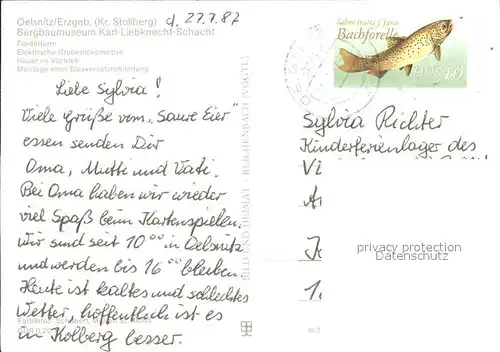 Oelsnitz/Erzgeb. (Kr. Stollberg)
Bergbaumuseum Karl-Liebknecht-Schacht
Förderturm
Elektrische Grubenlokomotive
Hauer im Vortrieb
Montage einer Blasversatzrohrleitung
d. 27.7.87
Liebe Sylvia!
Viele Grüße vom „Saure Eier"
essen senden Dir
Oma, Mutti und Vati.
Bei Oma haben wir wieder
viel Spaß beim Kartenspielen.
Wir sind seit 10⁰⁰ in Oelsnitz
und werden bis 16⁰⁰ bleiben.
Heute ist kaltes und schlechtes
Wetter, hoffentlich ist es
in Kolberg besser.
BILD UND HEIMAT REICHENBACH
Salmo trutta f. fario
Bachforelle
DDR 10
Sylvia Richter
Kinderferienlager des
privacy protection
Datenschutz